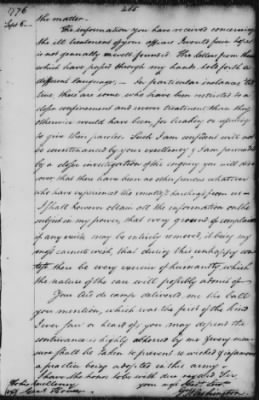 1776
Sept 6.
265
the matter.
The information you have received concerning
the ill treatment of your officers I would fain hope
is not generally well founded. The letters from them
which have passed through my hands hold forth a
different language. — In particular instances 'tis
true there are some who have been restricted to a
closer confinement and severer treatment than they
otherwise would have been, for breaking or refusing
to give their paroles. Such I am confident will not
be countenanced by your excellency, & I am persuaded
by a closer investigation of the enquiry you will disc
over that there have been no other persons whatever
who have experienced the smallest harshness from us —
I shall however obtain all the information on the
subject in my power, that every ground of complaint
if any exist may be entirely removed, it being my
most earnest wish, that during this unhappy con
test there be every exercise of humanity, which
the nature of the case will possibly admit of
Your Aid de camp delivered me the ball
you mention, which was the first of the kind
I ever saw or heard of. you may depend the
contrivance is highly abhorred by me & every mea
sure shall be taken to prevent so wicked & infamous
a practice being adopted in this army —
I have the honor to be with due regard Sir
To his Excellency
Genl Howe
your most Obedt Servt
G Washington